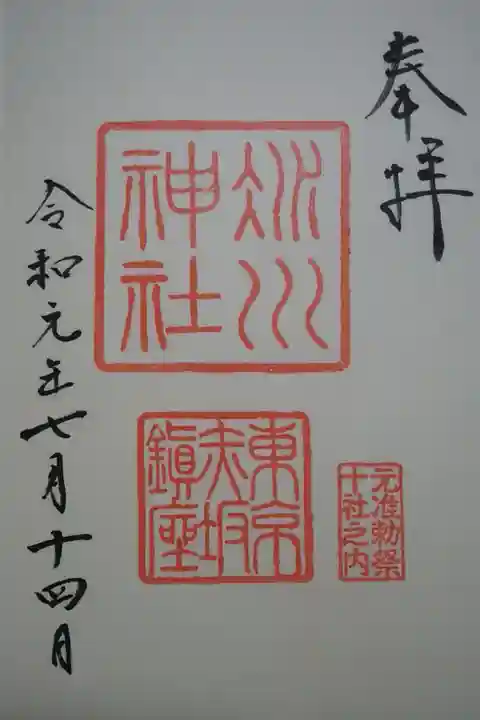 奉拝
氷川
神社
東京
赤坂
鎮座
元准勅祭
十社之内
令和元年七月十四日